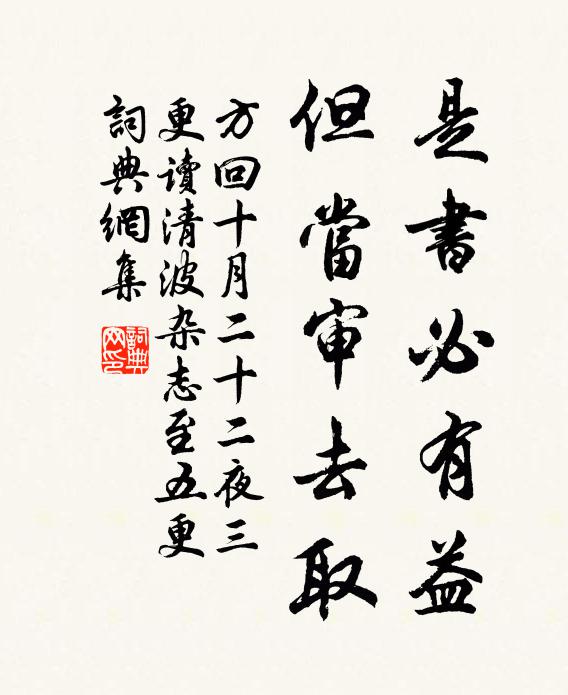 是書必有益
但當审去取
方回十月二十二夜三
更读清波杂志至五更
詞典網集
詞典網印